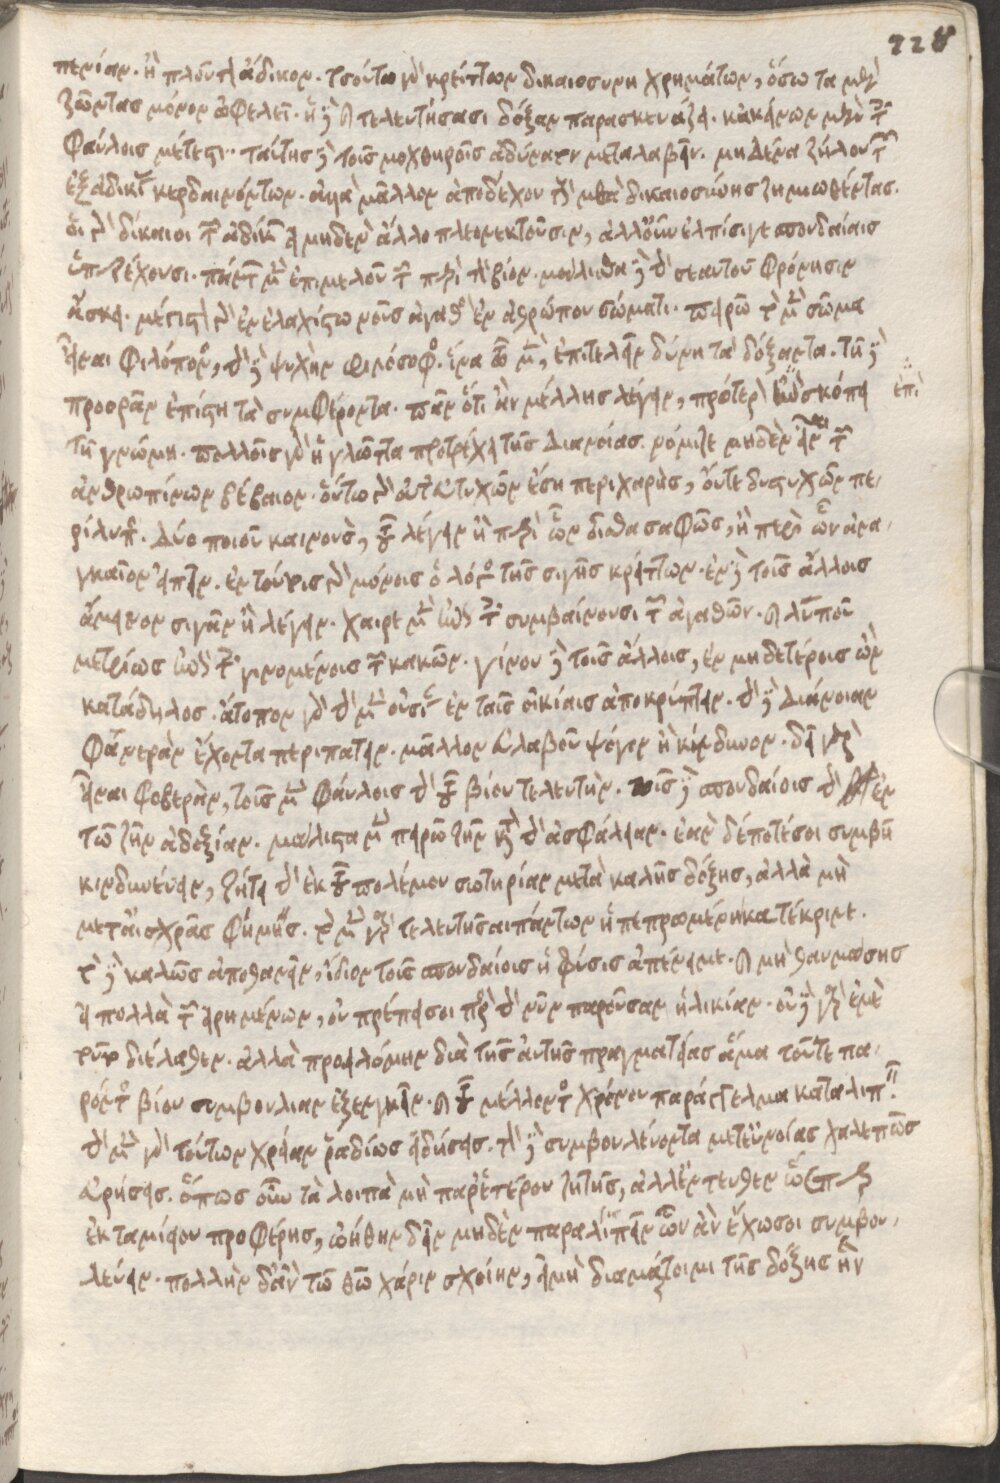 228
πενίαν. ἢ πλοῦτον ἄδικον. τοσούτω γὰρ κρείττων δικαιοσύνη χρημάτων, ὅσω τὰ μὲν
ζῶντας μόνον ὠφελεῖ. ἡ δὲ καὶ τελευτήσασι δόξαν παρασκευάζει. κἀκείνων μὲν τοῖς
φαύλοις μέτεστι. ταύτης δὲ τοῖς μοχθηροῖς ἀδύνατον μεταλαβεῖν. μηδένα ζήλου τῶν
ἐξ ἀδικίας κερδαινόντων. ἀλλὰ μᾶλλον ἀποδέχου τοὺς μετὰ δικαιοσύνης ζημιωθέντας.
οἱ γὰρ δίκαιοι τῶν ἀδίκων εἰ μηδὲν ἄλλο πλεονεκτοῦσιν, ἀλλ' οὖν ἐλπίσι γε σπουδαίαις
ὑπερέχουσι. πάντων μὲν ἐπιμελοῦ τῶν περὶ τὸν βίον. μάλιστα δὲ τὴν σεαυτοῦ φρόνησιν
ἄσκει. μέγιστον γὰρ ἐν ἐλαχίστω νοῦς ἀγαθὸς ἐν ἀνθρώπου σώματι. πειρῶ τὸ μὲν σῶμα
εἶναι φιλόπονος, τὴν δὲ ψυχὴν φιλόσοφος. ἵνα τῶ μὲν, ἐπιτελεῖν δύνη τὰ δόξαντα. τῆ δὲ
προορᾶν ἐπίστη τὰ συμφέροντα. πᾶν ὅτι ἂν μέλλης λέγειν, πρότερον ἐπισκόπει ἐπι
τῆ γνώμη. πολλοῖς γὰρ ἡ γλῶττα προτρέχει τῆς διανοίας. νόμιζε μηδὲν εἶναι τῶν
ἀνθρωπίνων βέβαιον. οὕτω γὰρ οὔτ' εὐτυχῶν ἔση περιχαρὴς, οὔτε δυστυχῶν πε-
ρίλυπος. δύο ποιοῦ καιροὺς, τοῦ λέγειν ἢ περὶ ὧν οἶσθα σαφῶς, ἢ περὶ ὧν ἀνα-
γκαῖον εἰπεῖν. ἐν τούτοις γὰρ μόνοις ὁ λόγος τῆς σιγῆς κρείττων. ἐν δὲ τοῖς ἄλλοις
ἄμεινον σιγᾶν ἢ λέγειν. χαῖρε μὲν ἐπὶ τοῖς συμβαίνουσι τῶν ἀγαθῶν. καὶ λυποῦ
μετρίως ἐπὶ τοῖς γινομένοις τῶν κακῶν. γίνου δὲ τοῖς ἄλλοις, ἐν μηδετέροις ὢν
κατάδηλος. ἄτοπον γὰρ τὴν μὲν οὐσίαν ἐν ταῖς οἰκίαις ἀποκρύπτειν. τὴν δὲ διάνοιαν
φανερὰν ἔχοντα περιπατεῖν. μᾶλλον εὐλαβοῦ ψέγον ἢ κίνδυνον. δεῖ γὰρ
εἶναι φοβερὰν, τοῖς μὲν φαύλοις τὴν τοῦ βίου τελευτήν. τοῖς δὲ σπουδαίοις τὴν ἐν
τῶ ζῆν ἀδοξίαν. μάλιστα μὲν πειρῶ ζῆν κατὰ τὴν ἀσφάλειαν. ἐὰν δέ ποτέ σοι συμβῆ
κινδυνεύειν, ζήτει τὴν ἐκ τοῦ πολέμου σωτηρίαν μετὰ καλῆς δόξης, ἀλλὰ μὴ
μετ' αἰσχρᾶς φήμης. τὸ μὲν γὰρ τελευτῆσαι πάντων ἡ πεπρωμένη κατέκρινε.
τὸ δὲ καλῶς ἀποθανεῖν, ἴδιον τοῖς σπουδαίοις ἡ φύσις ἀπένειμε. καὶ μὴ θαυμάσης
εἰ πολλὰ τῶν εἰρημένων, οὐ πρέπει σοι πρὸς τὴν νῦν παροῦσαν ἡλικίαν. οὐδὲ γὰρ ἐμὲ
τοῦτο διέλαθεν. ἀλλὰ προειλόμην διὰ τῆς αὐτῆς πραγματείας ἅμα τοῦ τε πα-
ρόντος βίου συμβουλίαν ἐξενεγκεῖν. καὶ τοῦ μέλλοντος χρόνου παράγγελμα καταλιπεῖν.
τὴν μὲν γὰρ τούτων χρείαν ῥαδίως εἰδήσεις. τὸν δὲ συμβουλεύοντα μετ' εὐνοίας χαλεπῶς
εὑρήσεις. ὅπως οὖν τὰ λοιπὰ μὴ παρ' ἑτέρου ζητῆς, ἀλλ' ἐντεῦθεν ὥσπερ
ἐκ ταμιείου προφέρης, ὠήθην δεῖν μηδὲν παραλιπεῖν ὧν ἂν ἔχω σοι συμβου-
λεύειν. πολλὴν δ' ἂν τῶ θεῶ χάριν σχοίην, εἰ μὴ διαμάρτοιμι τῆς δόξης ἣν